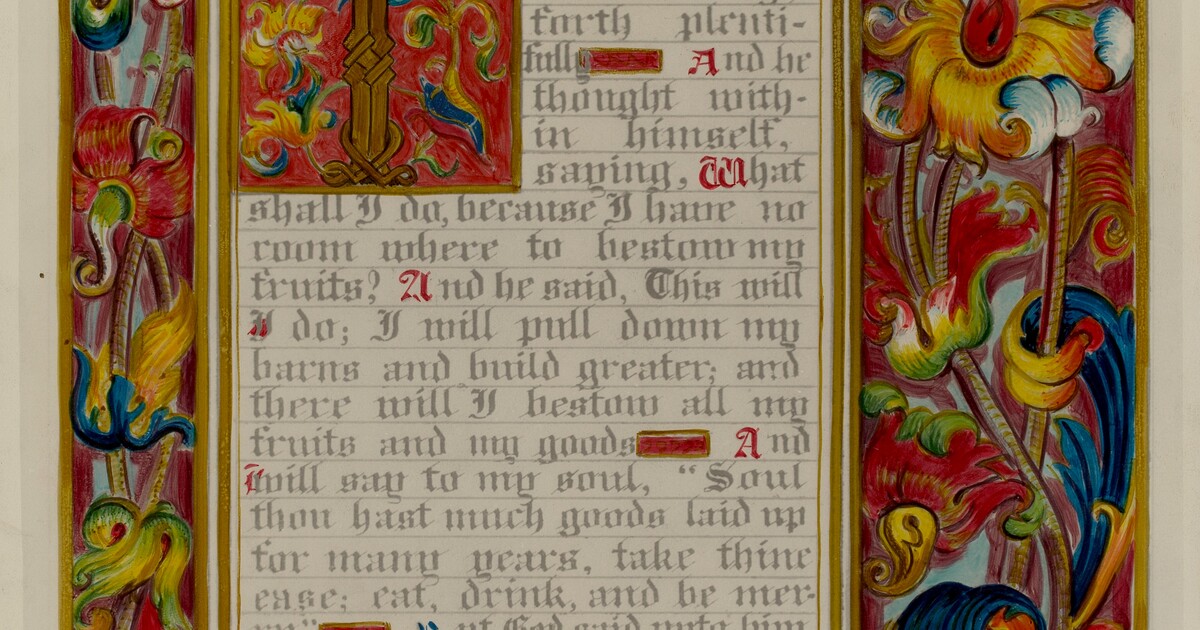 forth plenti-
fully And he
thought with-
in himself,
saying, What
shall I do, because I have no
room where to bestow my
fruits? And he said, This will
I do; I will pull down my
barns and build greater; and
there will I bestow all my
fruits and my goods And
I will say to my soul, “Soul
thou hast much goods laid up
for many years, take thine
ease; eat, drink, and be mer-
ry” But God said unto him